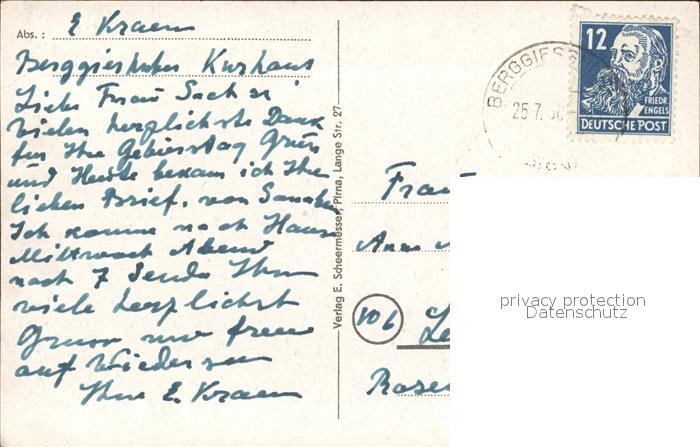 Abs.: E Kraem
Berggieshübler Kurhaus
Liebe Frau Sachse
vielen herzlichste Dank
für Ihr Geburstag Grus
und Heute bekam ich Ihr
lieben Brief. von
Ich komme nach Hause
Mittwoch Abend
nach 7 Sende Ihn
viele herzlichst
Gruss und freu
auf Wiedersen
Ihre E. Kraem
Verlag E. Scheermesser, Pirna, Lange Str. 27
BERGGIES
25.7.
12
FRIEDR.
ENGELS
DEUTSCHE POST
Frau
Anna
10b
Le
Rosen
privacy protection
Datenschutz